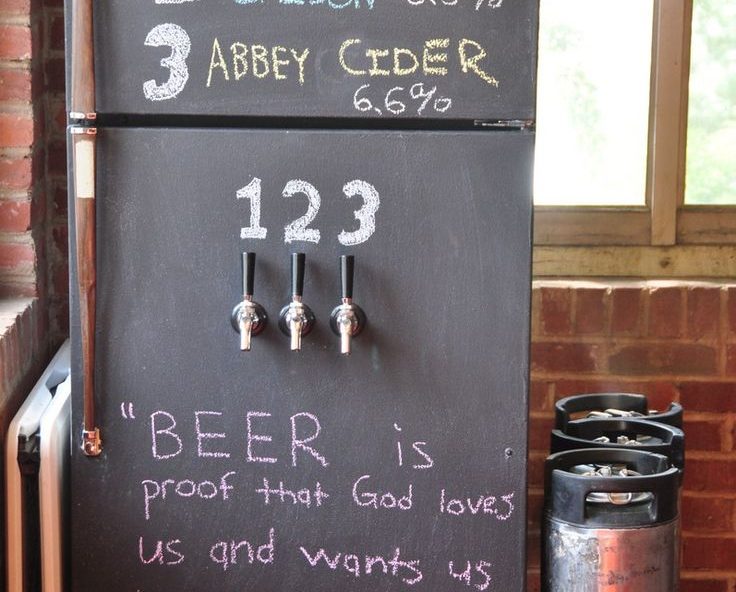 2 SAISON 6.5%
3 ABBEY CIDER
6.6%
1 2 3
"BEER is
proof that God loves
us and wants us